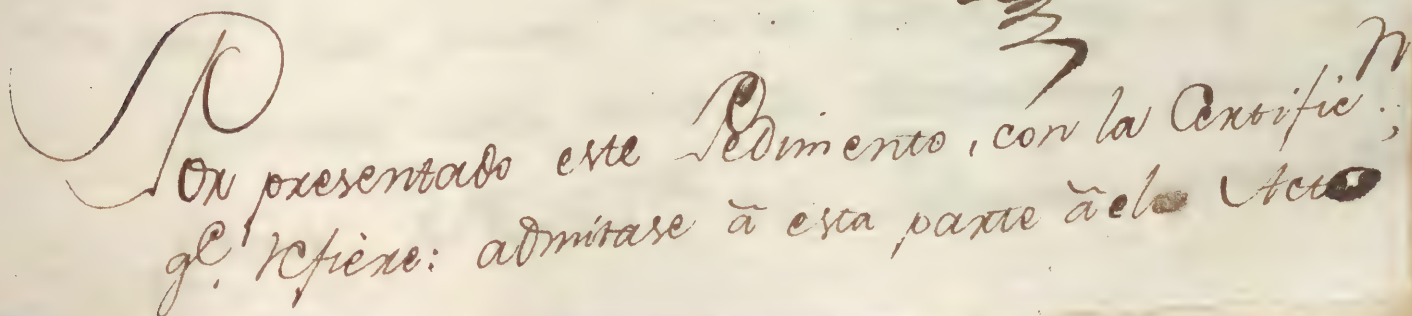 Por presentado este Pedimento, con la Certific.n;
qe. refiere: admitase â esta parte âel Acto